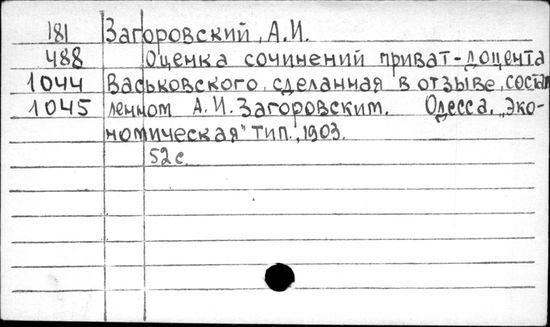 181 Загоровский, А.И.
488 Оценка сочинений приват-доцента
1044 Васьковского, сделанная в отзыве, состав-
1045 ленном А.И.Загоровским. Одесса, „Эко-
номическая" тип., 1903.
52 с.